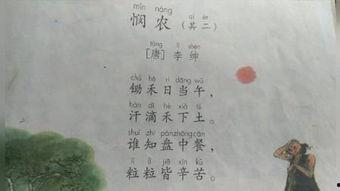 mǐn nóng qí èr
悯农(其二)
táng lǐ shēn
[唐]李绅
chú hé rì dāng wǔ
锄禾日当午，
hàn dī hé xià tǔ
汗滴禾下土。
shuí zhī pánzhōngcān
谁知盘中餐，
lì lì jiē xīn kǔ
粒粒皆辛苦。